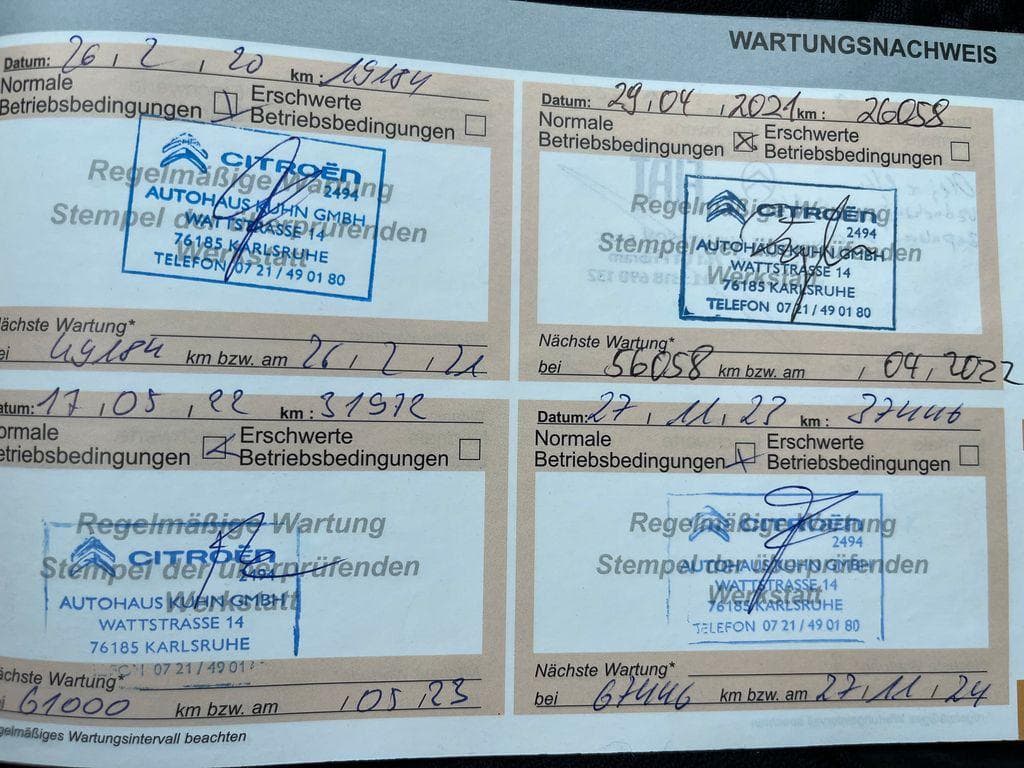 WARTUNGSNACHWEIS
Datum: 26, 2, 20 km: 19184
Normale
Betriebsbedingungen
Erschwerte
Betriebsbedingungen
Regelmäßige Wartung
Stempel der überprüfenden
Werkstatt
CITROËN
2494
AUTOHAUS KUHN GMBH
WATTSTRASSE 14
76185 KARLSRUHE
TELEFON 07 21 / 49 01 80
Nächste Wartung*
ei 49184 km bzw. am 26, 2, 21
Datum: 29, 04, 2021 km: 26058
Normale
Betriebsbedingungen
Erschwerte
Betriebsbedingungen
Regelmäßige Wartung
Stempel der überprüfenden
Werkstatt
CITROËN
2494
AUTOHAUS KUHN GMBH
WATTSTRASSE 14
76185 KARLSRUHE
TELEFON 07 21 / 49 01 80
Nächste Wartung*
bei 56058 km bzw. am , 04, 2022
atum: 17, 05, 22 km: 31972
ormale
etriebsbedingungen
Erschwerte
Betriebsbedingungen
Regelmäßige Wartung
Stempel der überprüfenden
Werkstatt
CITROËN
2494
AUTOHAUS KUHN GMBH
WATTSTRASSE 14
76185 KARLSRUHE
07 21 / 49 01
ächste Wartung*
61000 km bzw. am , 05, 23
Datum: 27, 11, 23 km: 37446
Normale
Betriebsbedingungen
Erschwerte
Betriebsbedingungen
Regelmäßige Wartung
Stempel der überprüfenden
Werkstatt
CITROËN
2494
AUTOHAUS KUHN GMBH
WATTSTRASSE 14
76185 KARLSRUHE
TELEFON 07 21 / 49 01 80
Nächste Wartung*
bei 67446 km bzw. am 27, 11, 24
egelmäßiges Wartungsintervall beachten